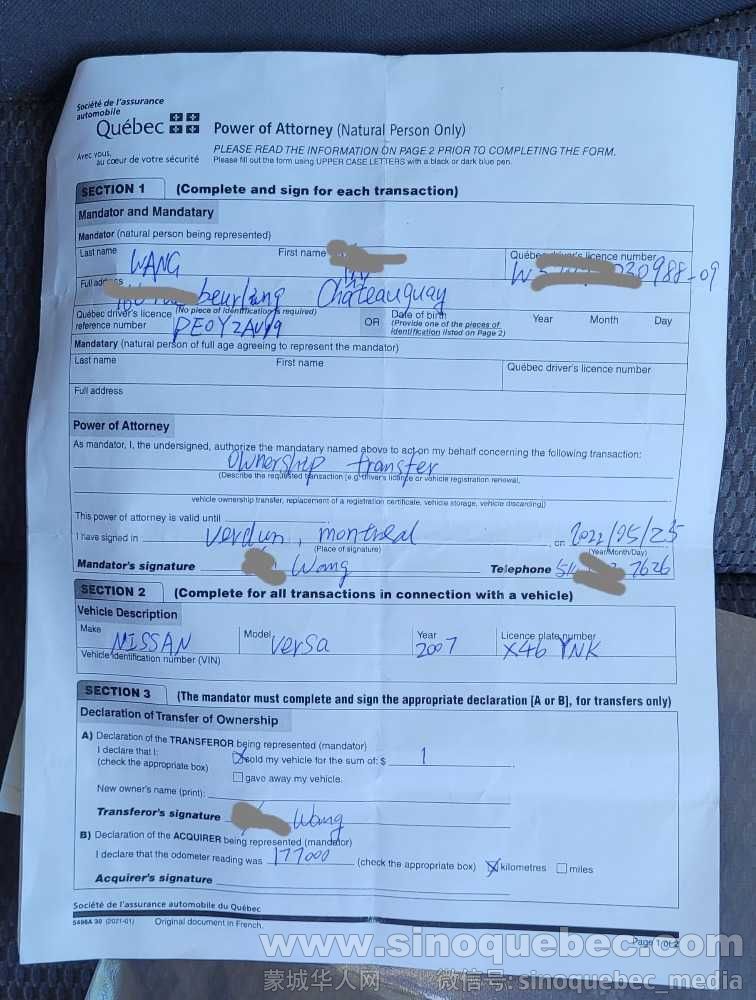 Société de l'assurance
automobile
Québec
Avec vous,
au cœur de votre sécurité
Power of Attorney (Natural Person Only)
PLEASE READ THE INFORMATION ON PAGE 2 PRIOR TO COMPLETING THE FORM.
Please fill out the form using UPPER CASE LETTERS with a black or dark blue pen.
SECTION 1 (Complete and sign for each transaction)
Mandator and Mandatary
Mandator (natural person being represented)
Last name First name Québec driver's licence number
WANG 030988-09
Full address
beurling Châteauguay
Québec driver's licence (No piece of identification is required)
reference number
OR
Date of birth
(Provide one of the pieces of
identification listed on Page 2)
Year Month Day
Mandatary (natural person of full age agreeing to represent the mandator)
Last name First name Québec driver's licence number
Full address
Power of Attorney
As mandator, I, the undersigned, authorize the mandatary named above to act on my behalf concerning the following transaction:
Ownership transfer
(Describe the requested transaction [e.g. driver's licence or vehicle registration renewal,
vehicle ownership transfer, replacement of a registration certificate, vehicle storage, vehicle discarding])
This power of attorney is valid until
I have signed in Verdun, montreal on 2022/05/25
(Place of signature) (Year/Month/Day)
Mandator's signature Wang Telephone 7626
SECTION 2 (Complete for all transactions in connection with a vehicle)
Vehicle Description
Make NISSAN Model Versa Year 2007 Licence plate number X46 YNK
Vehicle identification number (VIN)
SECTION 3 (The mandator must complete and sign the appropriate declaration [A or B], for transfers only)
Declaration of Transfer of Ownership
A) Declaration of the TRANSFEROR being represented (mandator)
I declare that I: sold my vehicle for the sum of: $ 1
(check the appropriate box)
gave away my vehicle.
New owner's name (print):
Transferor's signature Wang
B) Declaration of the ACQUIRER being represented (mandator)
I declare that the odometer reading was 177000 (check the appropriate box) kilometres miles
Acquirer's signature
Société de l'assurance automobile du Québec
5496A 30 (2021-01) Original document in French.
Page 1 of 2
www.sinoquebec.com
蒙城华人网 微信号: sinoquebec_media